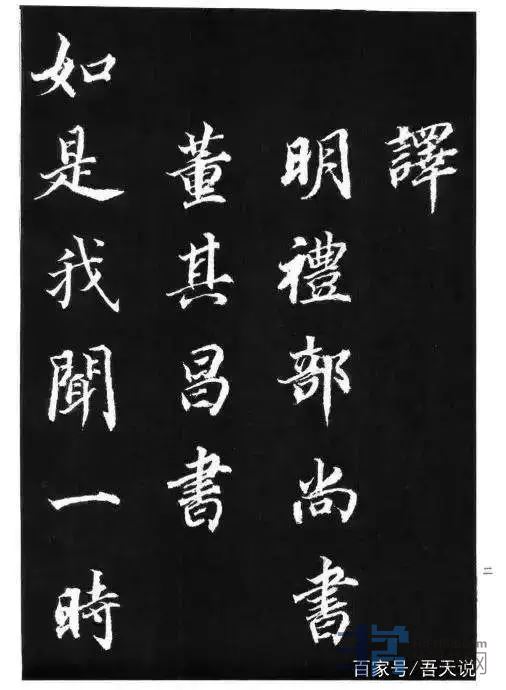 譯
明禮部尚書
董其昌書
如是我聞一時
二
百家号/吾天说